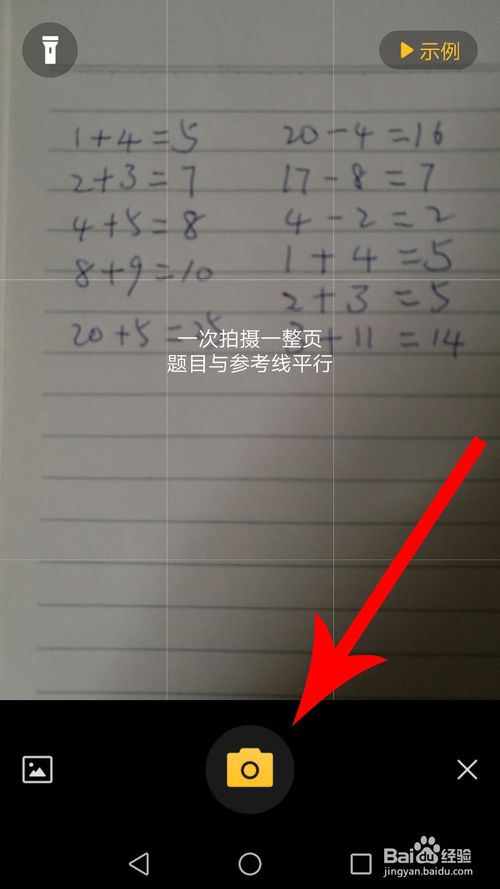 示例
1+4=5
2+3=7
4+5=8
8+9=10
20+5=25
20-4=16
17-8=7
4-2=2
1+4=5
2+3=5
3+11=14
一次拍摄一整页
题目与参考线平行
Baidu经验
jingyan.baidu.com